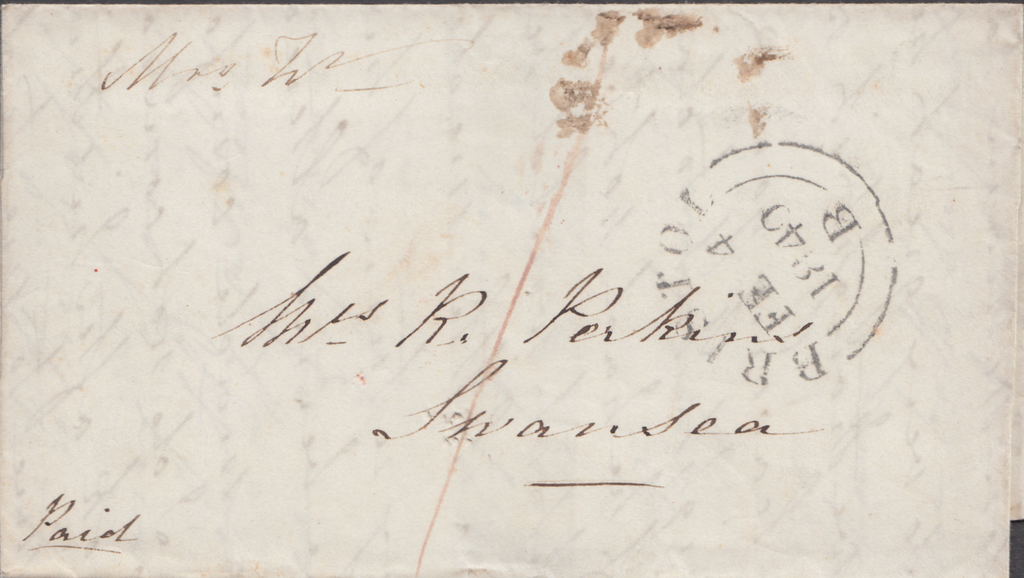 Mrs. Wm
BRISTOL
FE 4
1840
B
Mrs R. Perkins
Swansea
Paid